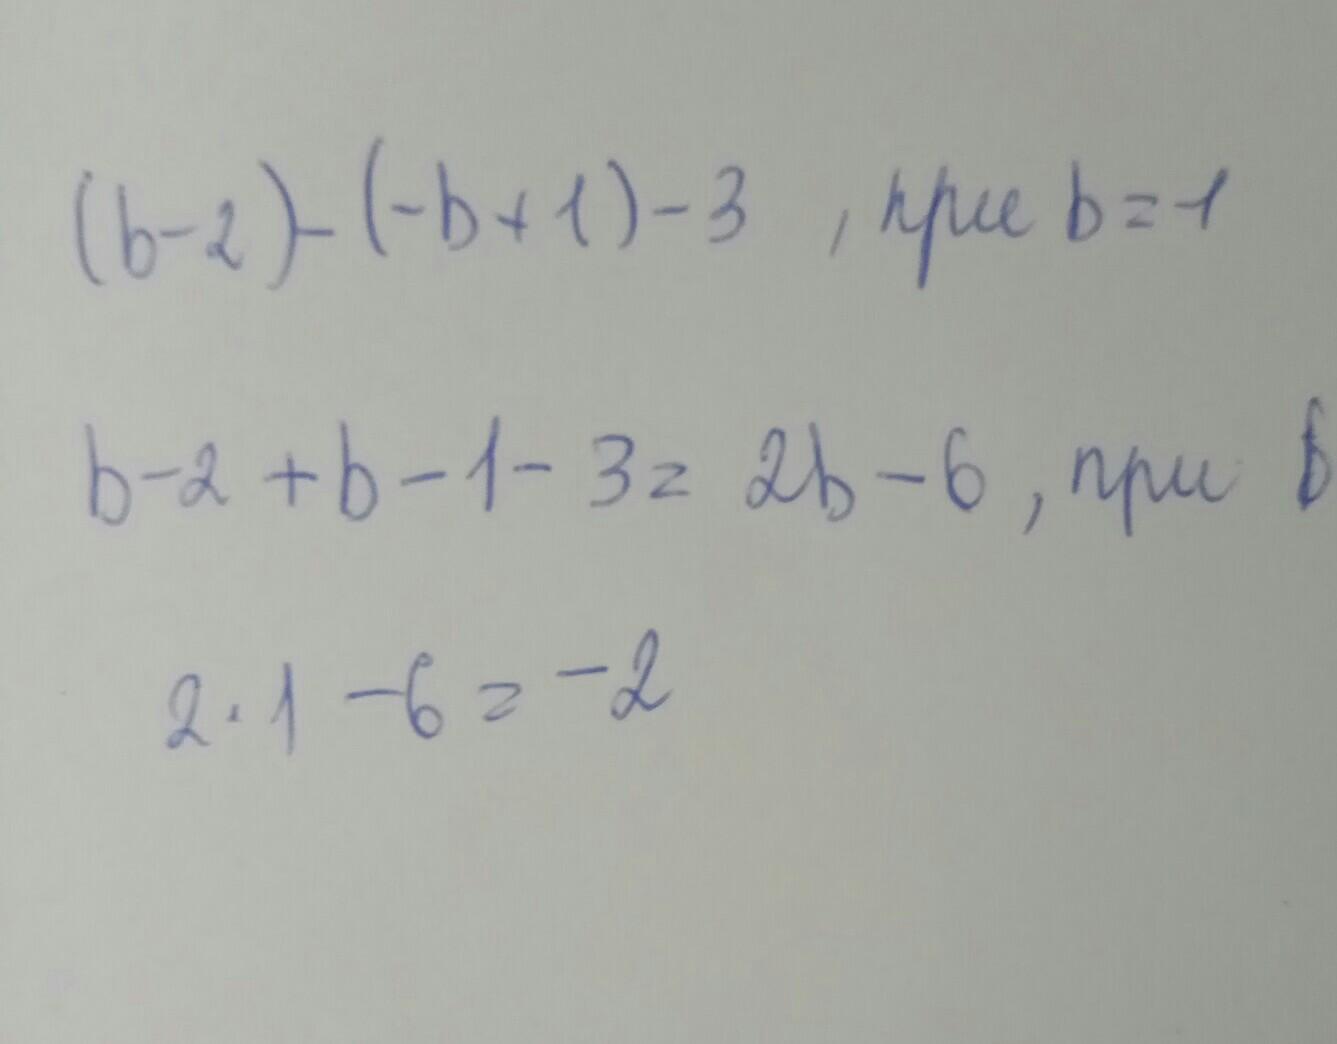 (b-2)-(-b+1)-3 , при b=-1
b-2+b-1-3=2b-6, при b
2·1-6=-2